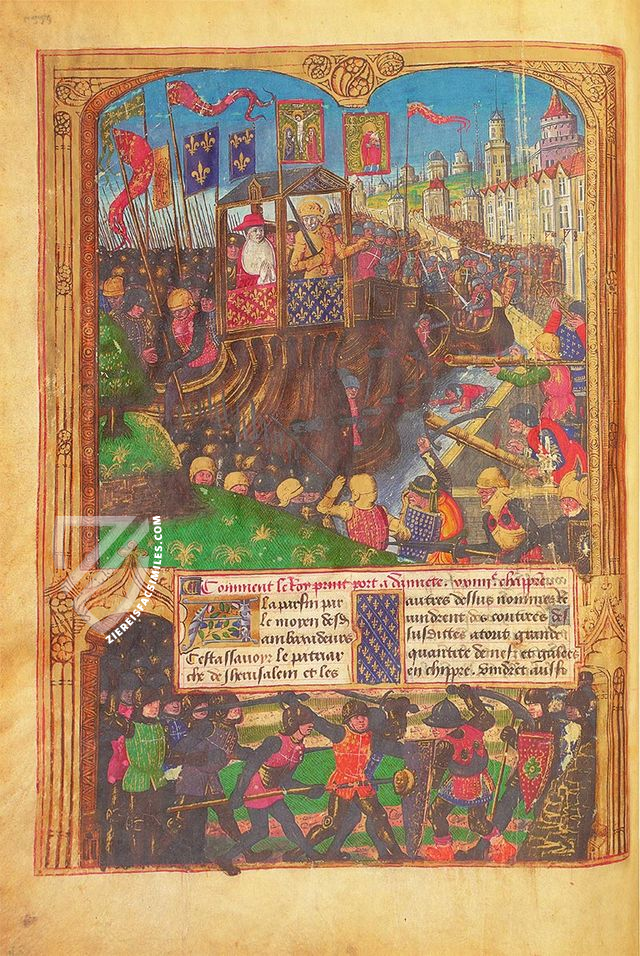 Comment le Roy print port a damiete. xviiie. chapitre
A la parfin par
le moyen desd
ambaxadeurs
Cest assavoir le patriar
che de Jherusalem et les
autres dessus nommez se
vindrent des contrees des
susdittes atout grande
quantite de nefz et galees
en chippre. Vindrent aussi
ZIEREISFACSIMILES.COM